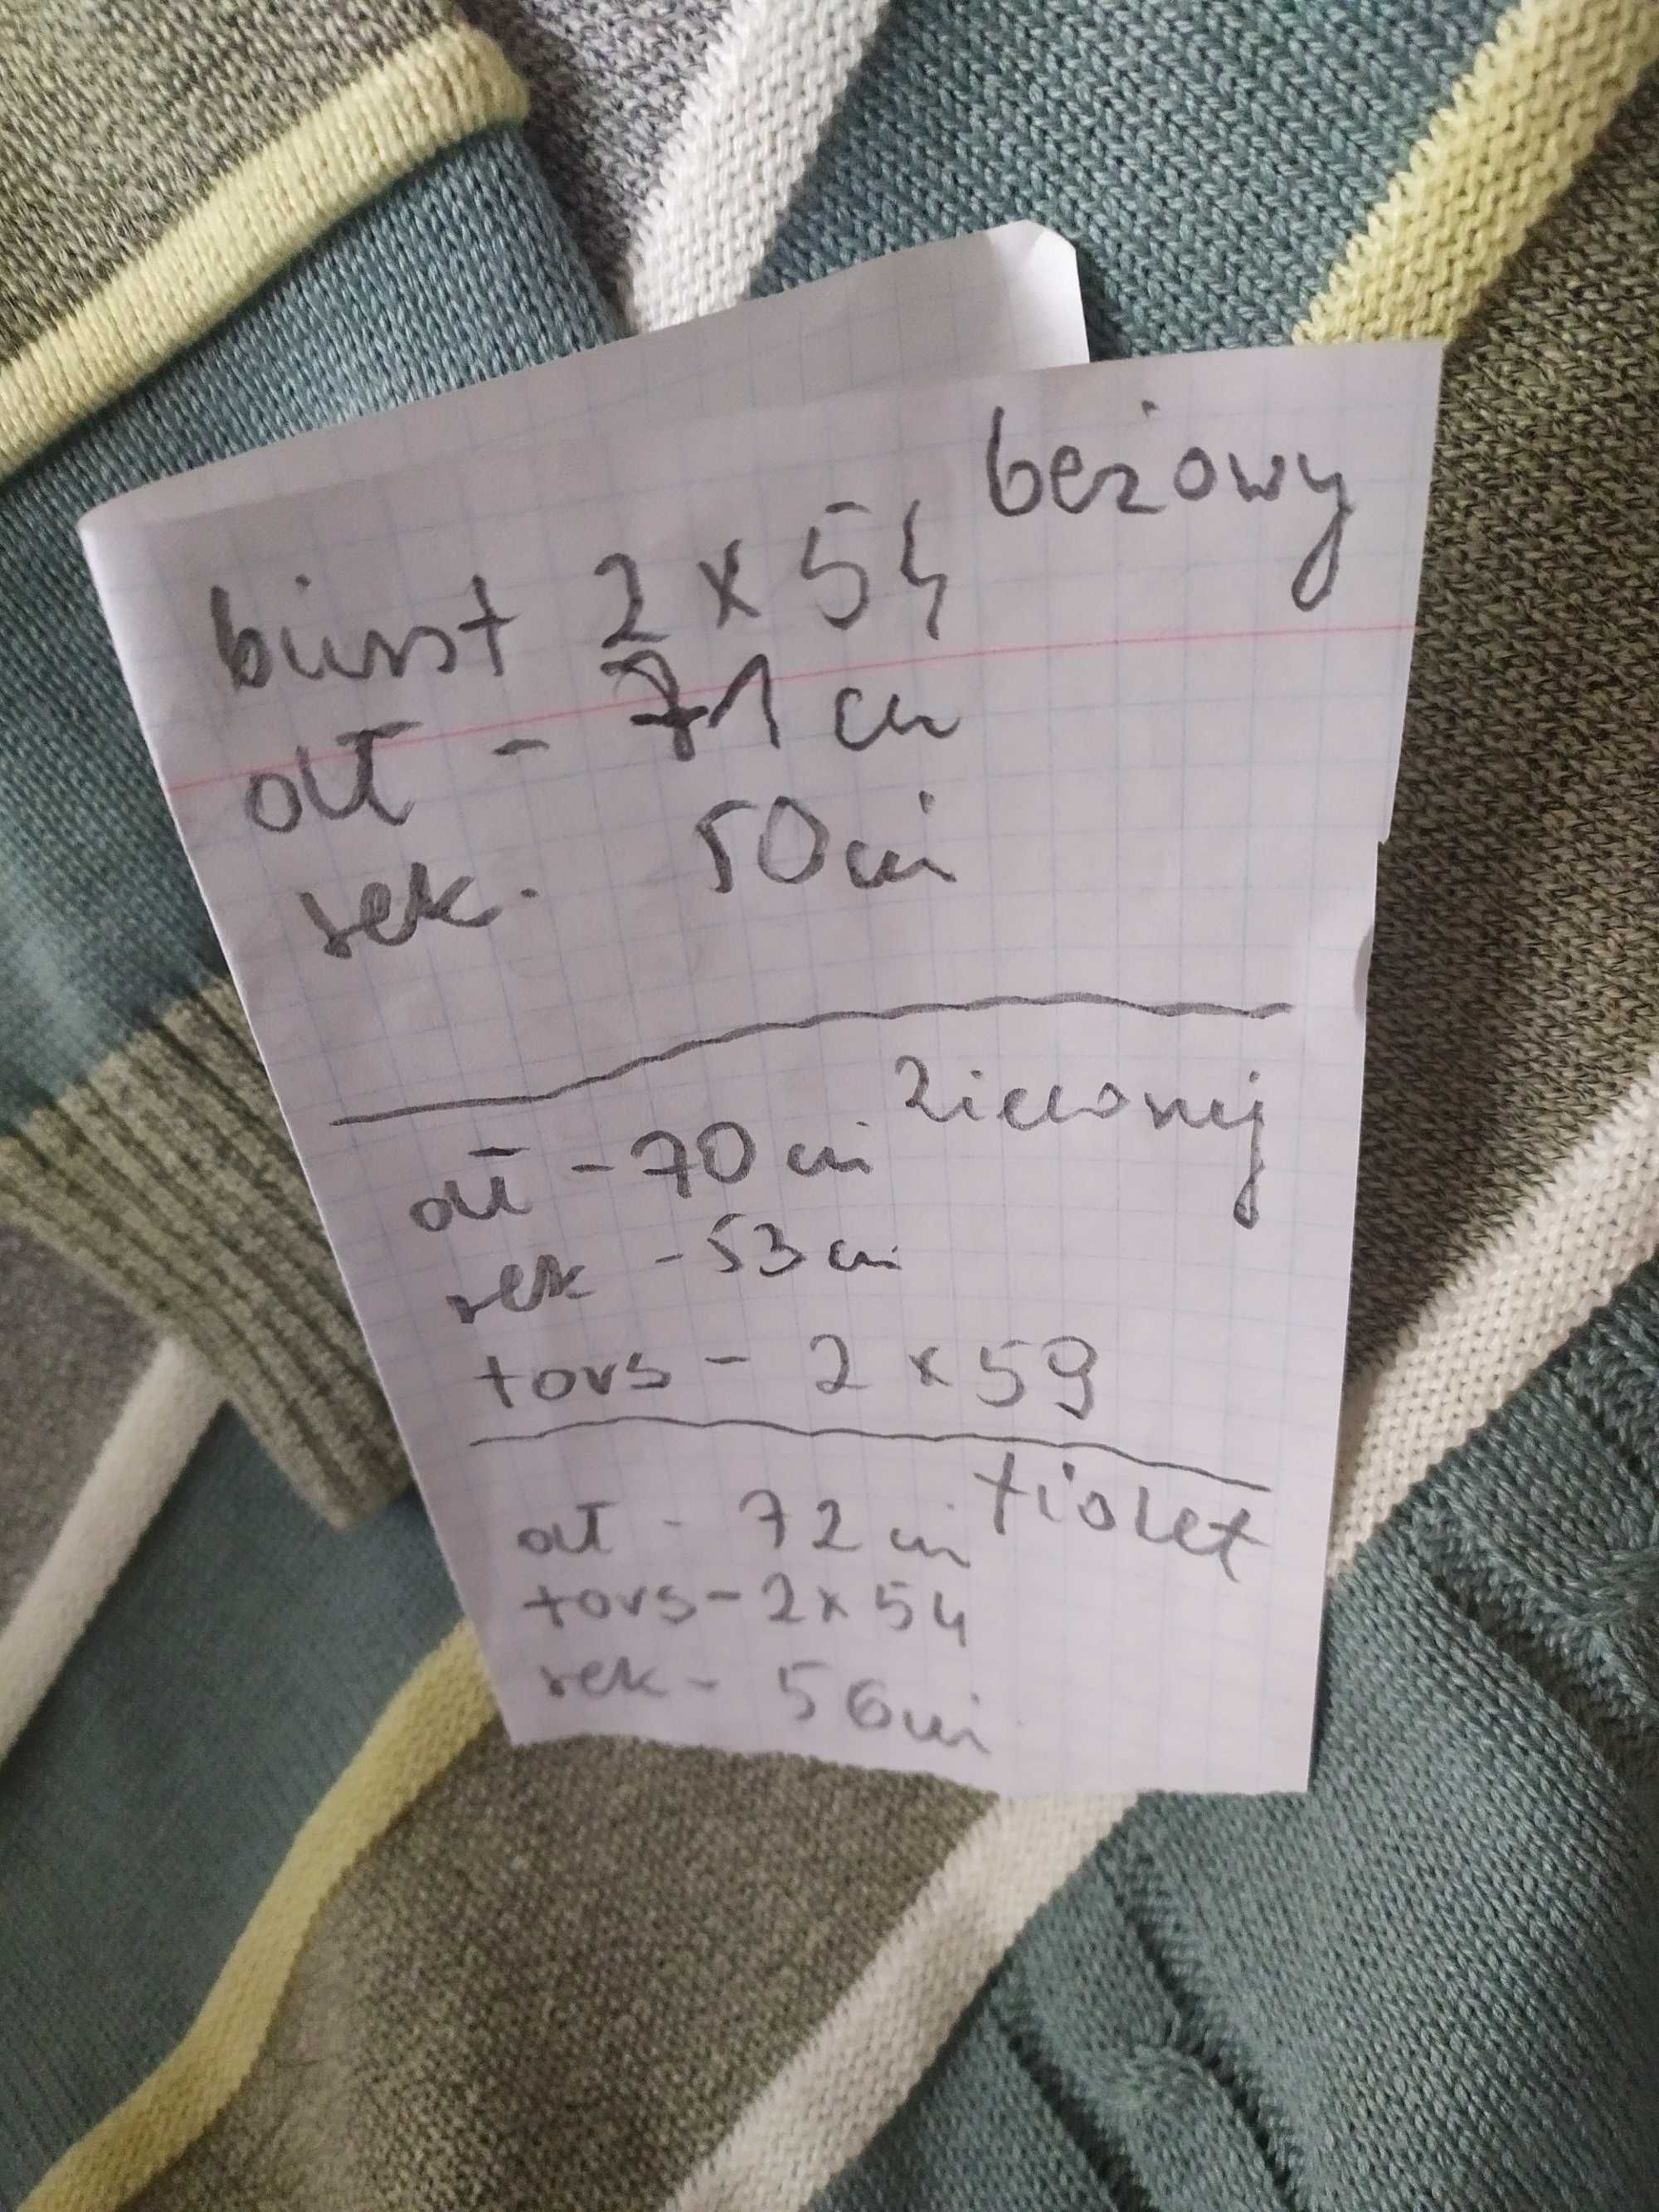 beżowy
biust 2 x 54
dł - 71 cm
ręk. 50 cm
dł - 70 cm zielony
ręk - 53 cm
tors - 2 x 59
dł - 72 cm fiolet
tors - 2 x 54
ręk - 56 cm